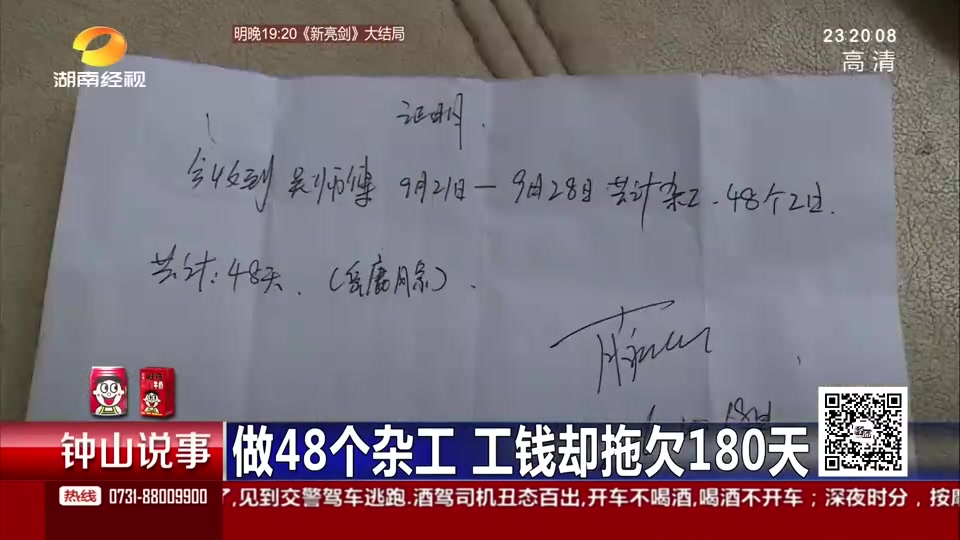 明晚19:20《新亮剑》大结局
23:20:08
高清
湖南经视
证明.
今收到 吴师傅 9月21日—9月28日 共计杂工.48个工日.
共计:48天.(岳麓月亮).
钟山说事
做48个杂工 工钱却拖欠180天
热线 0731-88009900
了,见到交警驾车逃跑.酒驾司机丑态百出,开车不喝酒,喝酒不开车;深夜时分,按